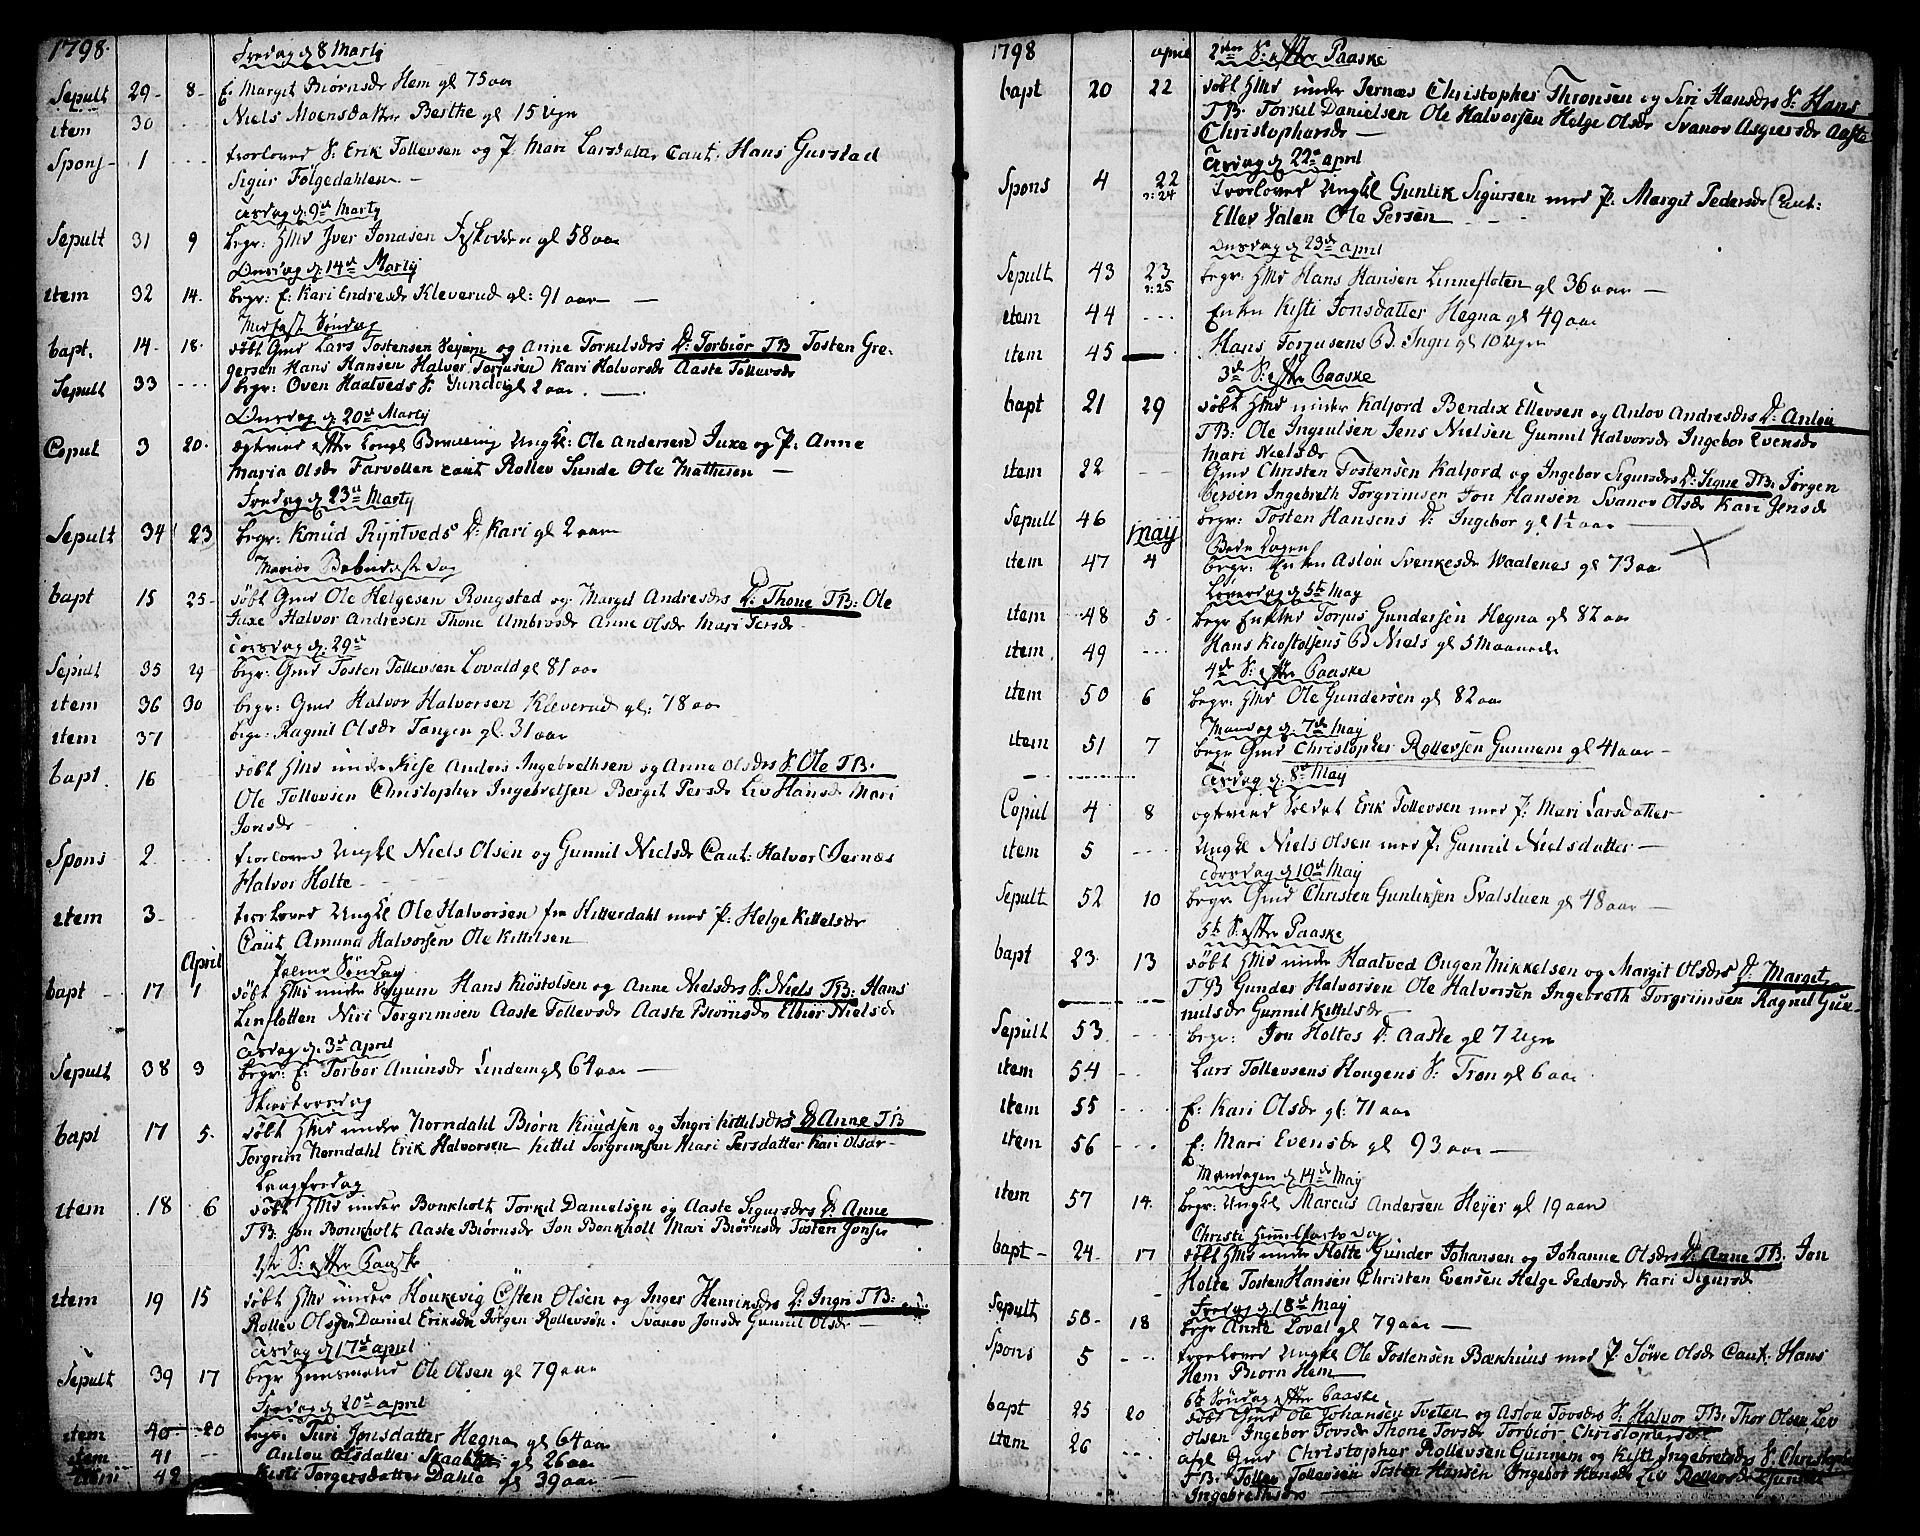 1798.
Fredag d 8 Martj
Sepult 29 - 8 - E: Margit Biørnsdr Hem gl 75 aar
item 30 - Niels Moensdatter Berthe gl 15 ugr
Spons - 1 troloved S: Erik Tollevsen og P. Mari Larsdatter Caut. Hans Gurstad
Sigur Folgedahlen -
Tirsdag d: 9de Martj
Sepult 31 9 begr: HMd Iver Jonasen gl 58 aar
Onsdag d: 14de Martj
item 32 14. begr: E: Kari Endresdr Kleverud gl: 91 aar
Midfast Søndag
bapt. 14 - 18. døbt Gmd Lars Tostensen og Anne Torkelsdrs D: Torbiør TB Tosten Gre-
gersen Hans Hansen Halvor Torjusen Kari Halvorsdr Aaste Tollevsdr
Sepult 33 begr: Oven Haatveds S: gl 2 aar. -
Onsdag d: 20de Martj
Copul 3 20. ægteviud efter Bevilling Ungkl: Ole Andersen Juxe og P. Anne
Maria Olsdr Farvollen caut Rollev Sunde Ole Mathisen -
Fredag d 23de Martj
Sepult 34 23 begr: Knud Ryntveds D: Kari gl 2 aar
Mariæ Bebudelses dag
bapt 15 25 - døbt Gmd Ole Helgesen Rongstad og Margit Andresdrs D: Thone TB: Ole
Juxe Halvor Andresen Thone Ambrosdr Anne Olsdr Mari Persdr -
Torsdag d: 29de
Sepult 35 29 begr: Gmd Tosten Tollevsen Lovald gl 81 aar
item 36 30 begr: Gmd Halvor Halvorsen Kleverud gl: 78 aar
item 37 - begr: Ragnil Olsdr Tangen gl. 31 aar
bapt. 16 døbt HMd under Anders Ingebrethsen og Anne Olsdrs S: Ole TB.
Ole Tollevsen Christopher Ingebretsen Bergit Persdr Liv Hansdr Mari
Jonsdr -
Spons 2. troloved Ungkl Niels Olsen og Gunnil Nielsdr Caut: Halvor Jernæs
Halvor Holte -
item 3. troloved Ungkl Ole Halvorsen fra Hitterdahl med P: Helge Kittelsdr
Caut Amund Halvorsen Ole Kittelsen
April Palme Søndag
bapt - 17 1 døbt HMd under Hans Kiøstolsen og Anne Nielsdrs S: Niels TB: Hans
Linflotten Niri Torgrimsen Aaste Tollevsdr Aaste Biørnsdr Elbior Nielsdr
Tirsdag d: 3de April
Sepult 38 3 begr: E: Torbor Amunsdr Lindem gl 64 aar -
Skiertorsdag
bapt 17 5. døbt HMd under Norndahl Biørn Knudsen og Ingri Kittelsdrs D: Anne TB
Torgrim Norndahl Erik Halvorsen Kittil Torgrimsen Mari Persdatter Kari Olsdr -
Langfredag
item 18 6 døbt HMd under Bonkholt Torkil Danielsen og Aaste Sigursdrs D: Anne
TB: Jon Bonkholt Aaste Biørnsdr Jon Bonkholt Mari Biørnsdr Tosten Jonsen
1ste S: efter Paaske
item 19 15 døbt HMd under Houkevig Østen Olsen og Inger Henriksdrs D: Ingri TB:
Rollev Olsen Daniel Eriksen Jørgen Rollevsen. Svanov Jonsdr Gunnil Olsdr -
Tirsdag d 17de april
Sepult 39 17 begr Huusmand Ole Olsen gl 79 aar
Fredag d 20de april
item 40 20 begr: Turi Jonsdatter Hegna gl 64 aar
item 41 - Anlou Olsdatter gl 26 aar
item 42 Kisti Torgersdatter Dahle gl 39 aar -
1798 april 2den S: efter Paaske
bapt 20 22 døbt HMd under Jernæs Christopher Thronsen og Siri Hansdrs S: Hans
TB: Torkil Danielsen Ole Halvorsen Helge Olsdr Svanov Asgiersdr Aaste
Christophersdr -
Tirsdag d 22de april
Spons 4 22 ɔ: 24 Troloved Ungkl Gunlik Sigursen med P. Margit Pedersdr Caut:
Ellev Valen Ole Persen -
Onsdag d 23de april
Sepult 43 23 ɔ: 25 begr: HMd Hans Hansen Linnefloten gl 36 aar -
item 44 - Enken Kisti Jonsdatter Hegna gl 49 aar
item 45 - Hans Torjusens B. Ingri gl 10 ugr
3de S: efter Paaske
bapt 21 29 døbt HMd under Kalfjord Bendix Ellevsen og Anlov Andresdrs D: Anlou
TB: Ole Ingiulsen Jens Nielsen Gunnil Halvorsdr Ingebor Evensdr
Mari Nielsdr
item 22 - Gmd Christen Tostensen Kalfjord og Ingebor Sigursdrs D: Signe TB: Jørgen
Persen Ingebreth Torgrimsen Jon Hansen Svanov Olsdr Kari Jensdr
Sepult 46 begr: Tosten Hansens D: Ingebor gl 1½ aar -
May Bede Dagen
item 47 4 begr: Enken Aslou Svenkesdr Waalenes gl 73 aar
Løverdag d 5te May
item 48 5 - begr Enkmd Torjus Gundersen Hegna gl 82 aar
item 49 - Hans Kiøstolsens B Niels gl 5 maaneder
4de S: efter Paaske
item 50 6 begr: HMd Ole Gundersen gl 82 aar
Mandag d 7de May
item 51 7 begr Gmd Christopher Rollevsen Gunnem gl 41 aar -
Tirsdag d: 8de May
Copul 4 8 ægteviud Soldat Erik Tollevsen med P: Mari Larsdatter
item 5 - Ungkl Niels Olsen med P. Gunnil Nielsdatter -
Torsdag d 10de May
Sepult 52 10 begr: Gmd Christen Gunliksen Svalstuen gl 48 aar -
5te S: efter Paaske
bapt 23. 13 døbt HMd under Haatved Ongen Mikkelsen og Margit Olsdrs D: Margit
TB Gunder Halvorsen Ole Halvorsen Ingebreth Torgrimsen Ragnil Gun-
nulsdr Gunnil Kittelsdr -
Sepult 53 - begr: Jon Holtes D: Aaste gl 7 ugr
item 54 - Lars Tollevsens Hougens S: Tron gl 6 aar
item 55 - E: Kari Olsdr gl: 71 aar
item 56 - E: Mari Evensdr gl 93 aar -
Mandagen d 14de May
item 57 14. begr: Ungkl Marcus Andersen Heyer gl 19 aar
Christi Himmelfarts dag
bapt - 24. 17 døbt HMd under Holte Gunder Johansen og Johanne Olsdrs D: Anne TB: Jon
Holte Tosten Hansen Christen Evensen Helge Pedersdr Kari Sigursdr
Fredag d: 18de May
Sepult 58 - 18 begr Anne Loval gl 79 aar -
Spons 5 - trolovet Ungkl Ole Tostensen Bækhuus med P Tove Olsdr Caut: Hans
Hem Biørn Hem -
6te Søndag efter Paaske
bapt 25 20 døbt Gmd Ole Johansen Tveten og Aslou Tovsdrs S: Halvor TB: Thor Olsen Liv
Olsen Ingebor Tovsdr Thone Tovsdr Torbiør Christophersdr
item 26 - afgl Gmd Christopher Rollevsen Gunnem og Kisti Ingebretsdrs S: Christopher
TB: Tollev Tollevsen Tosten Hansen Ingebor Hansdr Liv Rollevsdr Gunder
Ingebrethsdr